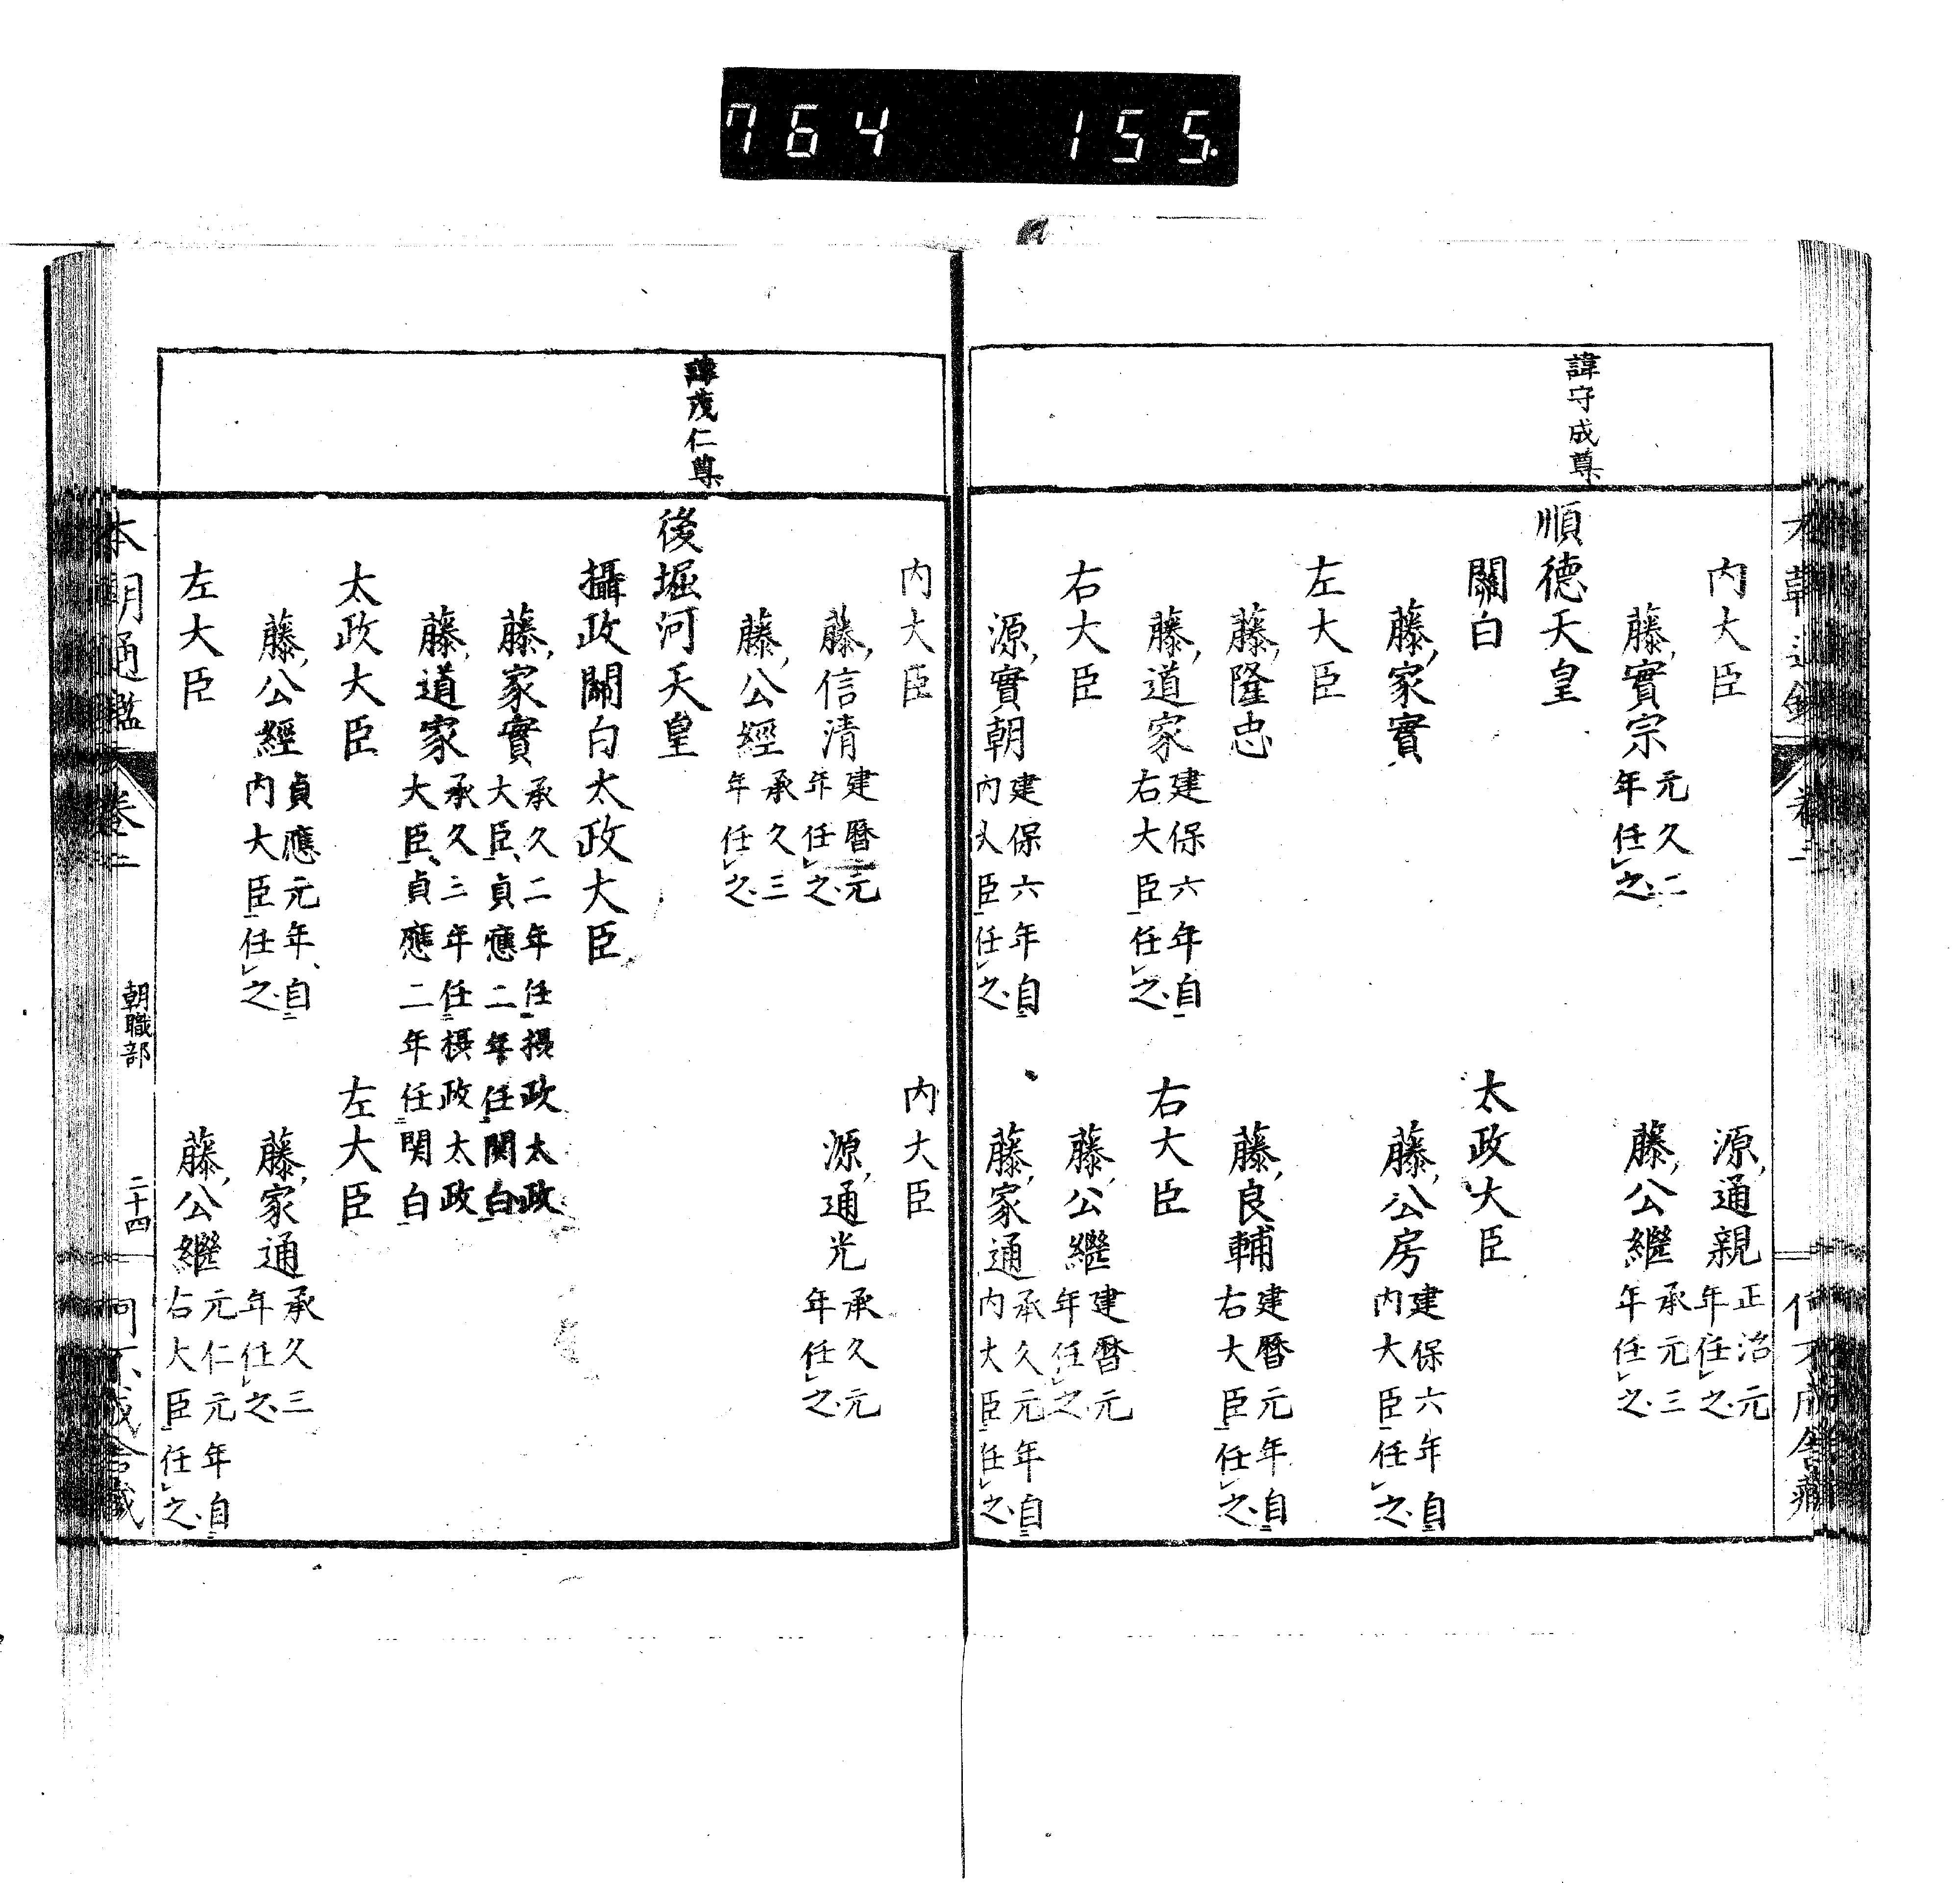 764 155.
諱守成尊
内大臣
源通親 正治元年任之
藤實宗 元久二年任之
藤公繼 承元三年任之
順徳天皇
關白
太政大臣
藤家實
藤公房 建保六年自内大臣任之
左大臣
藤隆忠
藤良輔 建暦元年自右大臣任之
藤道家 建保六年自右大臣任之
右大臣
右大臣
藤公繼 建暦元年任之
源實朝 建保六年自内大臣任之
藤家通 承久元年自内大臣任之
諱茂仁尊
内大臣
内大臣
藤信清 建暦元年任之
源通光 承久元年任之
藤公經 承久三年任之
後堀河天皇
攝政關白太政大臣
藤家實 承久二年任摂政太政大臣貞應二年任関白
藤道家 承久三年任摂政太政大臣貞應二年任関白
太政大臣
左大臣
藤公經 貞應元年自内大臣任之
藤家通 承久三年任之
左大臣
藤公繼 元仁元年自右大臣任之
本朝通鑑 卷二
朝職部
二十四